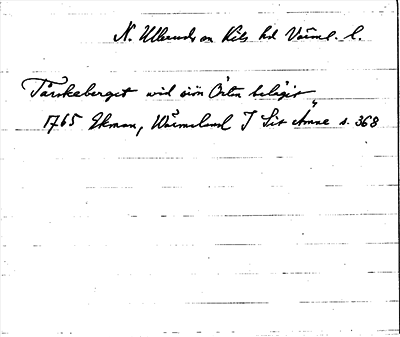 N. Ullerud sn Kils hd Värml. l.
Tärskeberget wid siön Örten belägit
1765 Ekman, Wärmeland I Sit Ämne s. 368